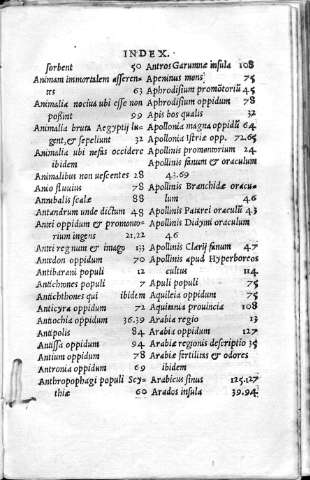 INDEX.
sorbent 50
Animam immortalem asseren-
tes 63
Animalia nocius ubi esse non
possint 99
Animalia bruta Aegyptij lu-
gent, & sepeliunt 32
Animalia ubi nefas occidere
ibidem
Animalibus non uescentes 28
Anio fluuius 78
Annibalis scalæ 88
Antandrum unde dictum 48
Antei oppidum & promonto-
rium ingens 21,22
Antei regnum & imago 113
Antedon oppidum 70
Antibarani populi 12
Antichtones populi 7
Antichthones qui ibidem
Anticyra oppidum 72
Antiochia oppidum 36.39
Antipolis 84
Antissa oppidum 94
Antium oppidum 78
Antronia oppidum 69
Anthropophagi populi Scy-
thiæ 60
Antros Garumnæ insula 108
Apeninus mons 75
Aphrodisium promōtoriū 45
Aphrodisium oppidum 78
Apis bos qualis 32
Apollonia magna oppidū 64
Apollonia Istriæ opp. 72.65
Apollinis promontorium 24
Apollinis fanum & oraculum
43.69
Apollinis Branchidæ oracu-
lum 46
Apollinis Patarei oraculū 43
Apollinis Didymi oraculum
46
Apollinis Clarij fanum 47
Apollinis apud Hyperboreos
cultus 114
Apuli populi 75
Aquileia oppidum 75
Aquitania prouincia 108
Arabia regio 13
Arabia oppidum 127
Arabiæ regionis descriptio 35
Arabiæ fertilitas & odores
ibidem
Arabicus sinus 125.127
Arados insula 39.94